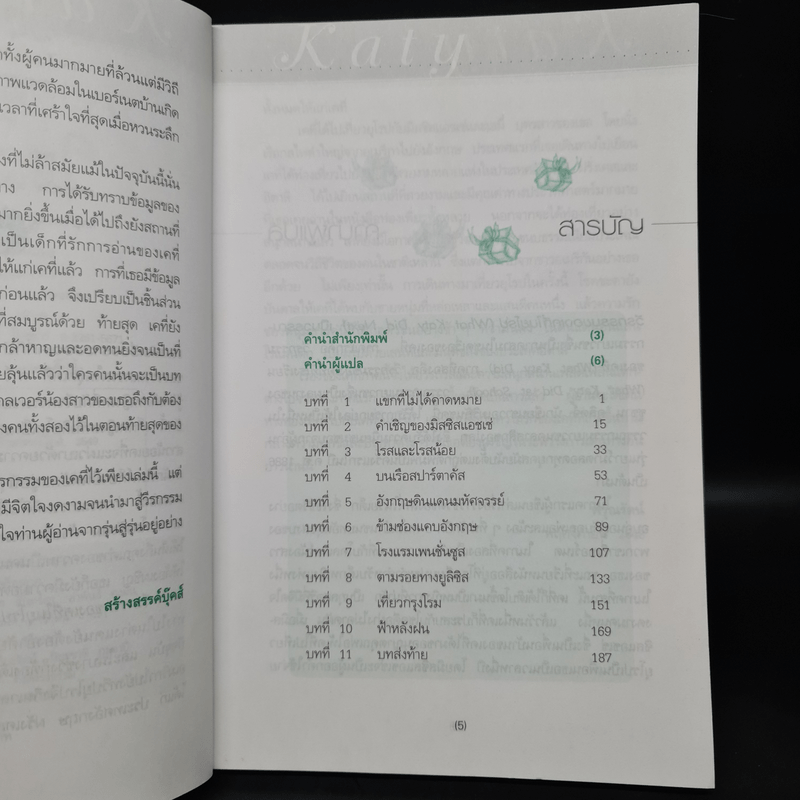 าทั้งผู้คนมากมายที่ล้วนแต่มีวิถี
าพแวดล้อมในเบอร์เนตบ้านเกิด
เวลาที่เศร้าใจที่สุดเมื่อหวนระลึก
งที่ไม่ล้าสมัยแม้ในปัจจุบันนี้นั่น
าง การได้รับทราบข้อมูลของ
มากยิ่งขึ้นเมื่อได้ไปถึงยังสถานที่
เป็นเด็กที่รักการอ่านของเคที่
ให้แก่เคที่แล้ว การที่เธอมีข้อมูล
ก่อนแล้ว จึงเปรียบเป็นชิ้นส่วน
ที่สมบูรณ์ด้วย ท้ายสุด เคที่ยัง
กล้าหาญและอดทนยิ่งจนเป็นที่
ยลุ้นแล้วว่าใครคนนั้นจะเป็นบท
าลเวอร์น้องสาวของเธอถึงกับต้อง
งคนทั้งสองไว้ในตอนท้ายสุดของ
รกรรมของเคที่ไว้เพียงเล่มนี้ แต่
มีจิตใจงดงามจนนำมาสู่วีรกรรม
ใจท่านผู้อ่านจากรุ่นสู่รุ่นอยู่อย่าง
สร้างสรรค์บุ๊คส์
Katy
สารบัญ
คำนำสำนักพิมพ์ (3)
คำนำผู้แปล (6)
บทที่ 1 แขกที่ไม่ได้คาดหมาย 1
บทที่ 2 คำเชิญของมิสซิสแอชเช่ 15
บทที่ 3 โรสและโรสน้อย 33
บทที่ 4 บนเรือสปาร์ตาคัส 53
บทที่ 5 อังกฤษดินแดนมหัศจรรย์ 71
บทที่ 6 ข้ามช่องแคบอังกฤษ 89
บทที่ 7 โรงแรมเพนชั่นซูส 107
บทที่ 8 ตามรอยทางยูลิซิส 133
บทที่ 9 เที่ยวกรุงโรม 151
บทที่ 10 ฟ้าหลังฝน 169
บทที่ 11 บทส่งท้าย 187
(5)